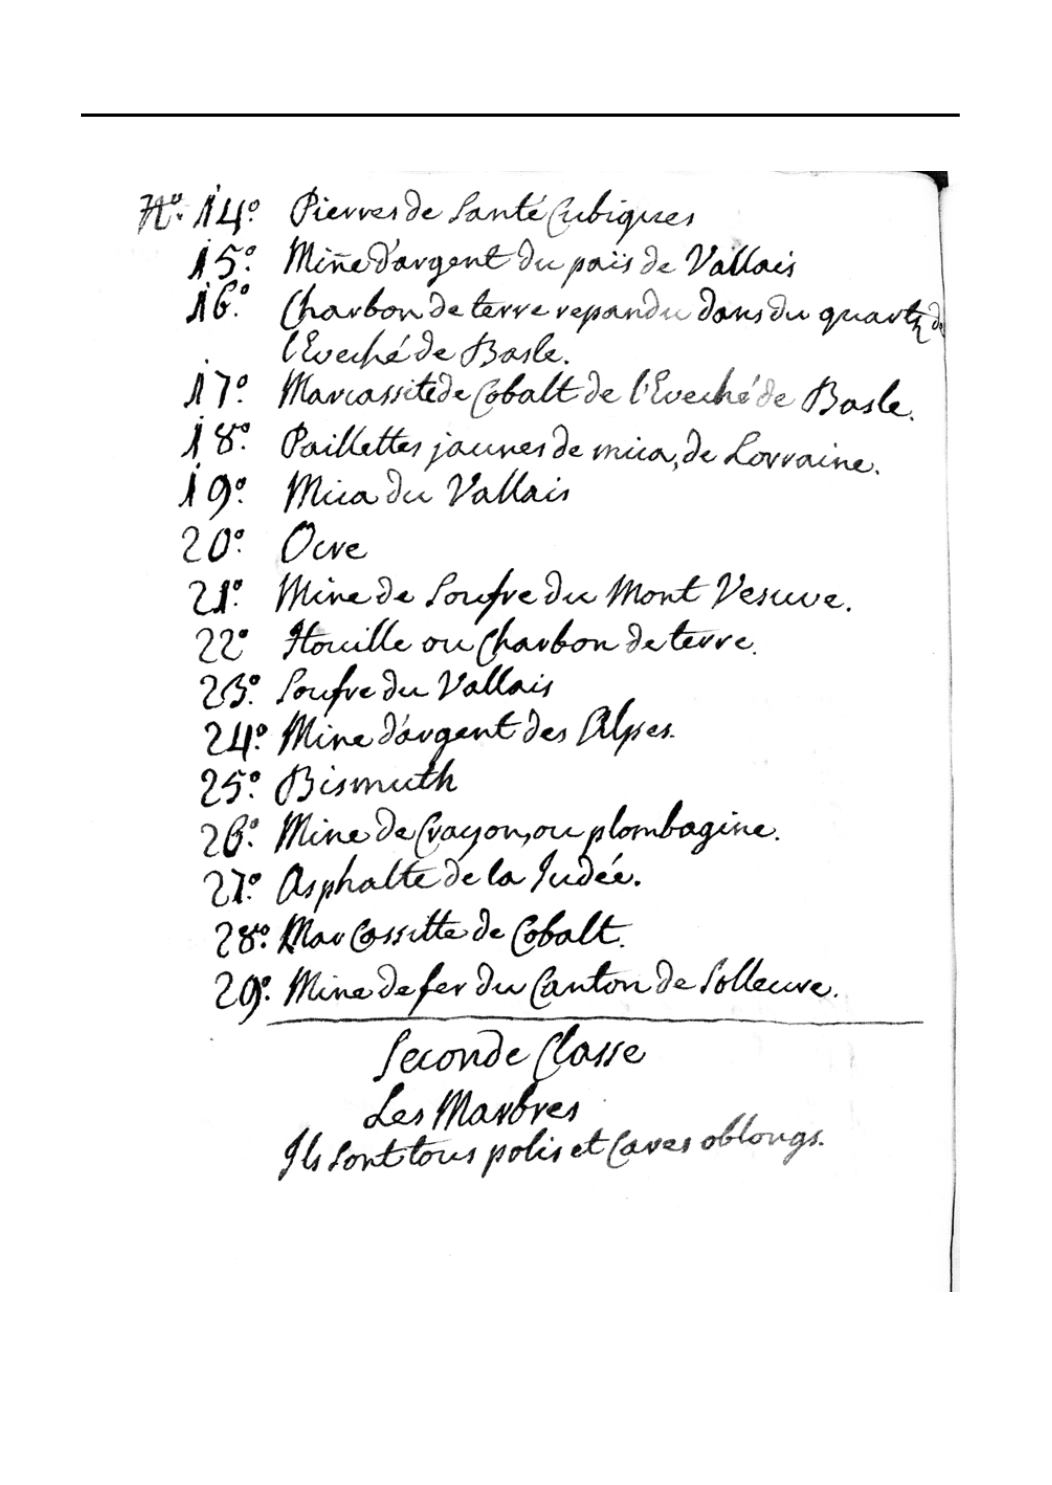 N.º 14.º Pierres de Santé Cubiques
15.º Mine d'argent du païs de Vallais
16.º Charbon de terre repandu dans du quartz de
l'Eveché de Basle.
17.º Marcassite de Cobalt de l'Eveché de Basle.
18.º Paillettes jaunes de mica, de Lorraine.
19.º Mica du Vallais
20.º Ocre
21.º Mine de Soufre du Mont Vesuve.
22º Houille ou Charbon de terre.
23.º Soufre du Vallais
24.º Mine d'argent des Alpes.
25.º Bismuth
26.º Mine de Crayon, ou plombagine.
27.º Asphalte de la Judée.
28.º Marcassitte de Cobalt.
29.º Mine de fer du Canton de Solleure.
Seconde Classe
Les Marbres
Ils sont tous polis et Carrés oblongs.